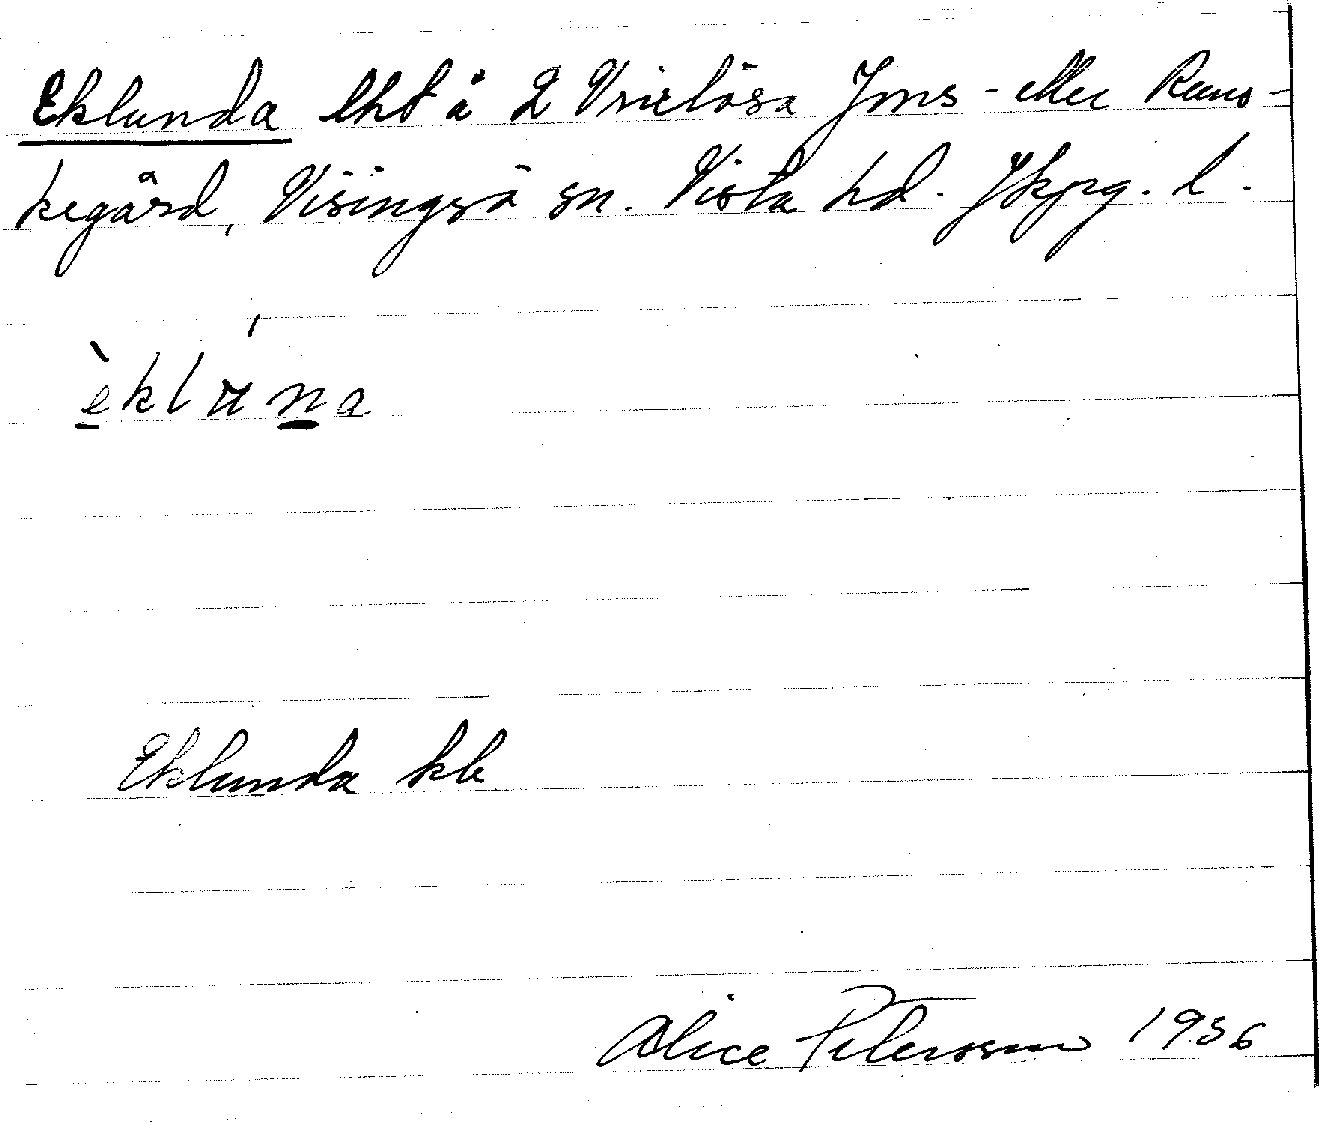 Eklunda lht å 2 Vrixlösa Jons- eller Rams-
kegård, Visingsö sn. Vista hd. Jkpg. l.
èklu̵na
Eklunda kb
Alice Petersson 1936